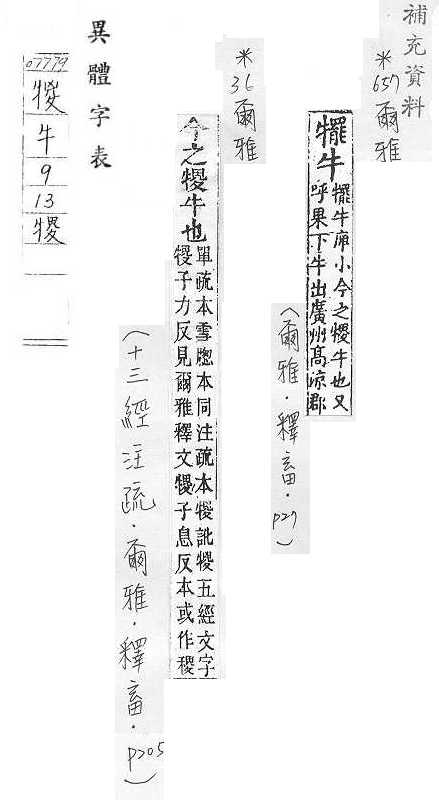 補充資料
*657爾雅
犤牛
犤牛庳小今之㹘牛也又
呼果下牛出廣州高涼郡
(爾雅.釋畜.
P27)
*36爾雅
今之㹘牛也
單疏本雪牕本同注疏本
訛
五經文字
子力反見爾雅釋文
子息反本或作稷
(十三經注疏.爾雅.釋畜.
P205)
異體字表
07779
牛
9
13